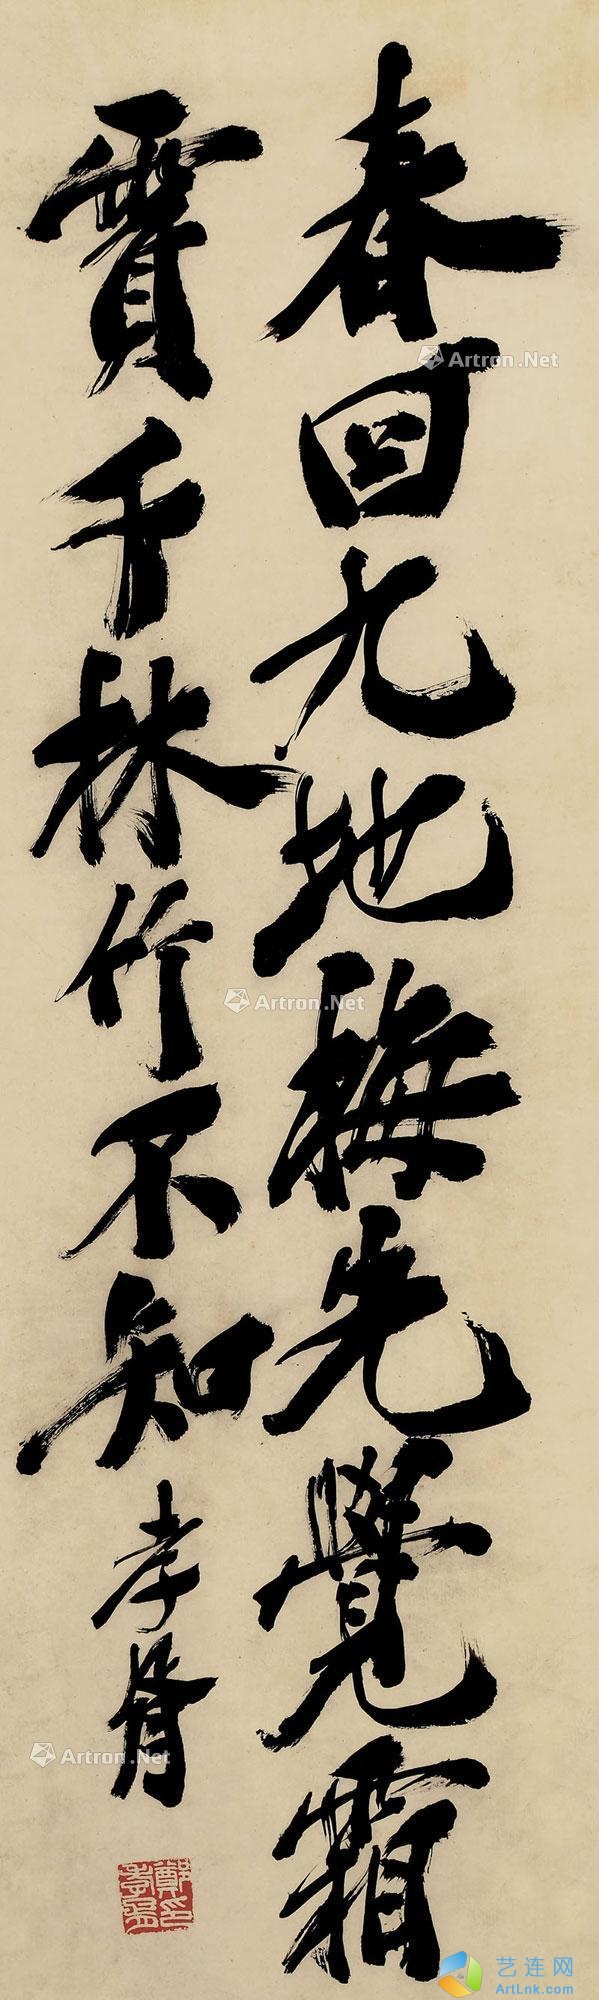 春回九地梅先覺霜
霣千林竹不知
孝胥
鄭印
孝胥
Artron.Net
Artron.Net
Artron.Net
艺连网
ArtLnk.com